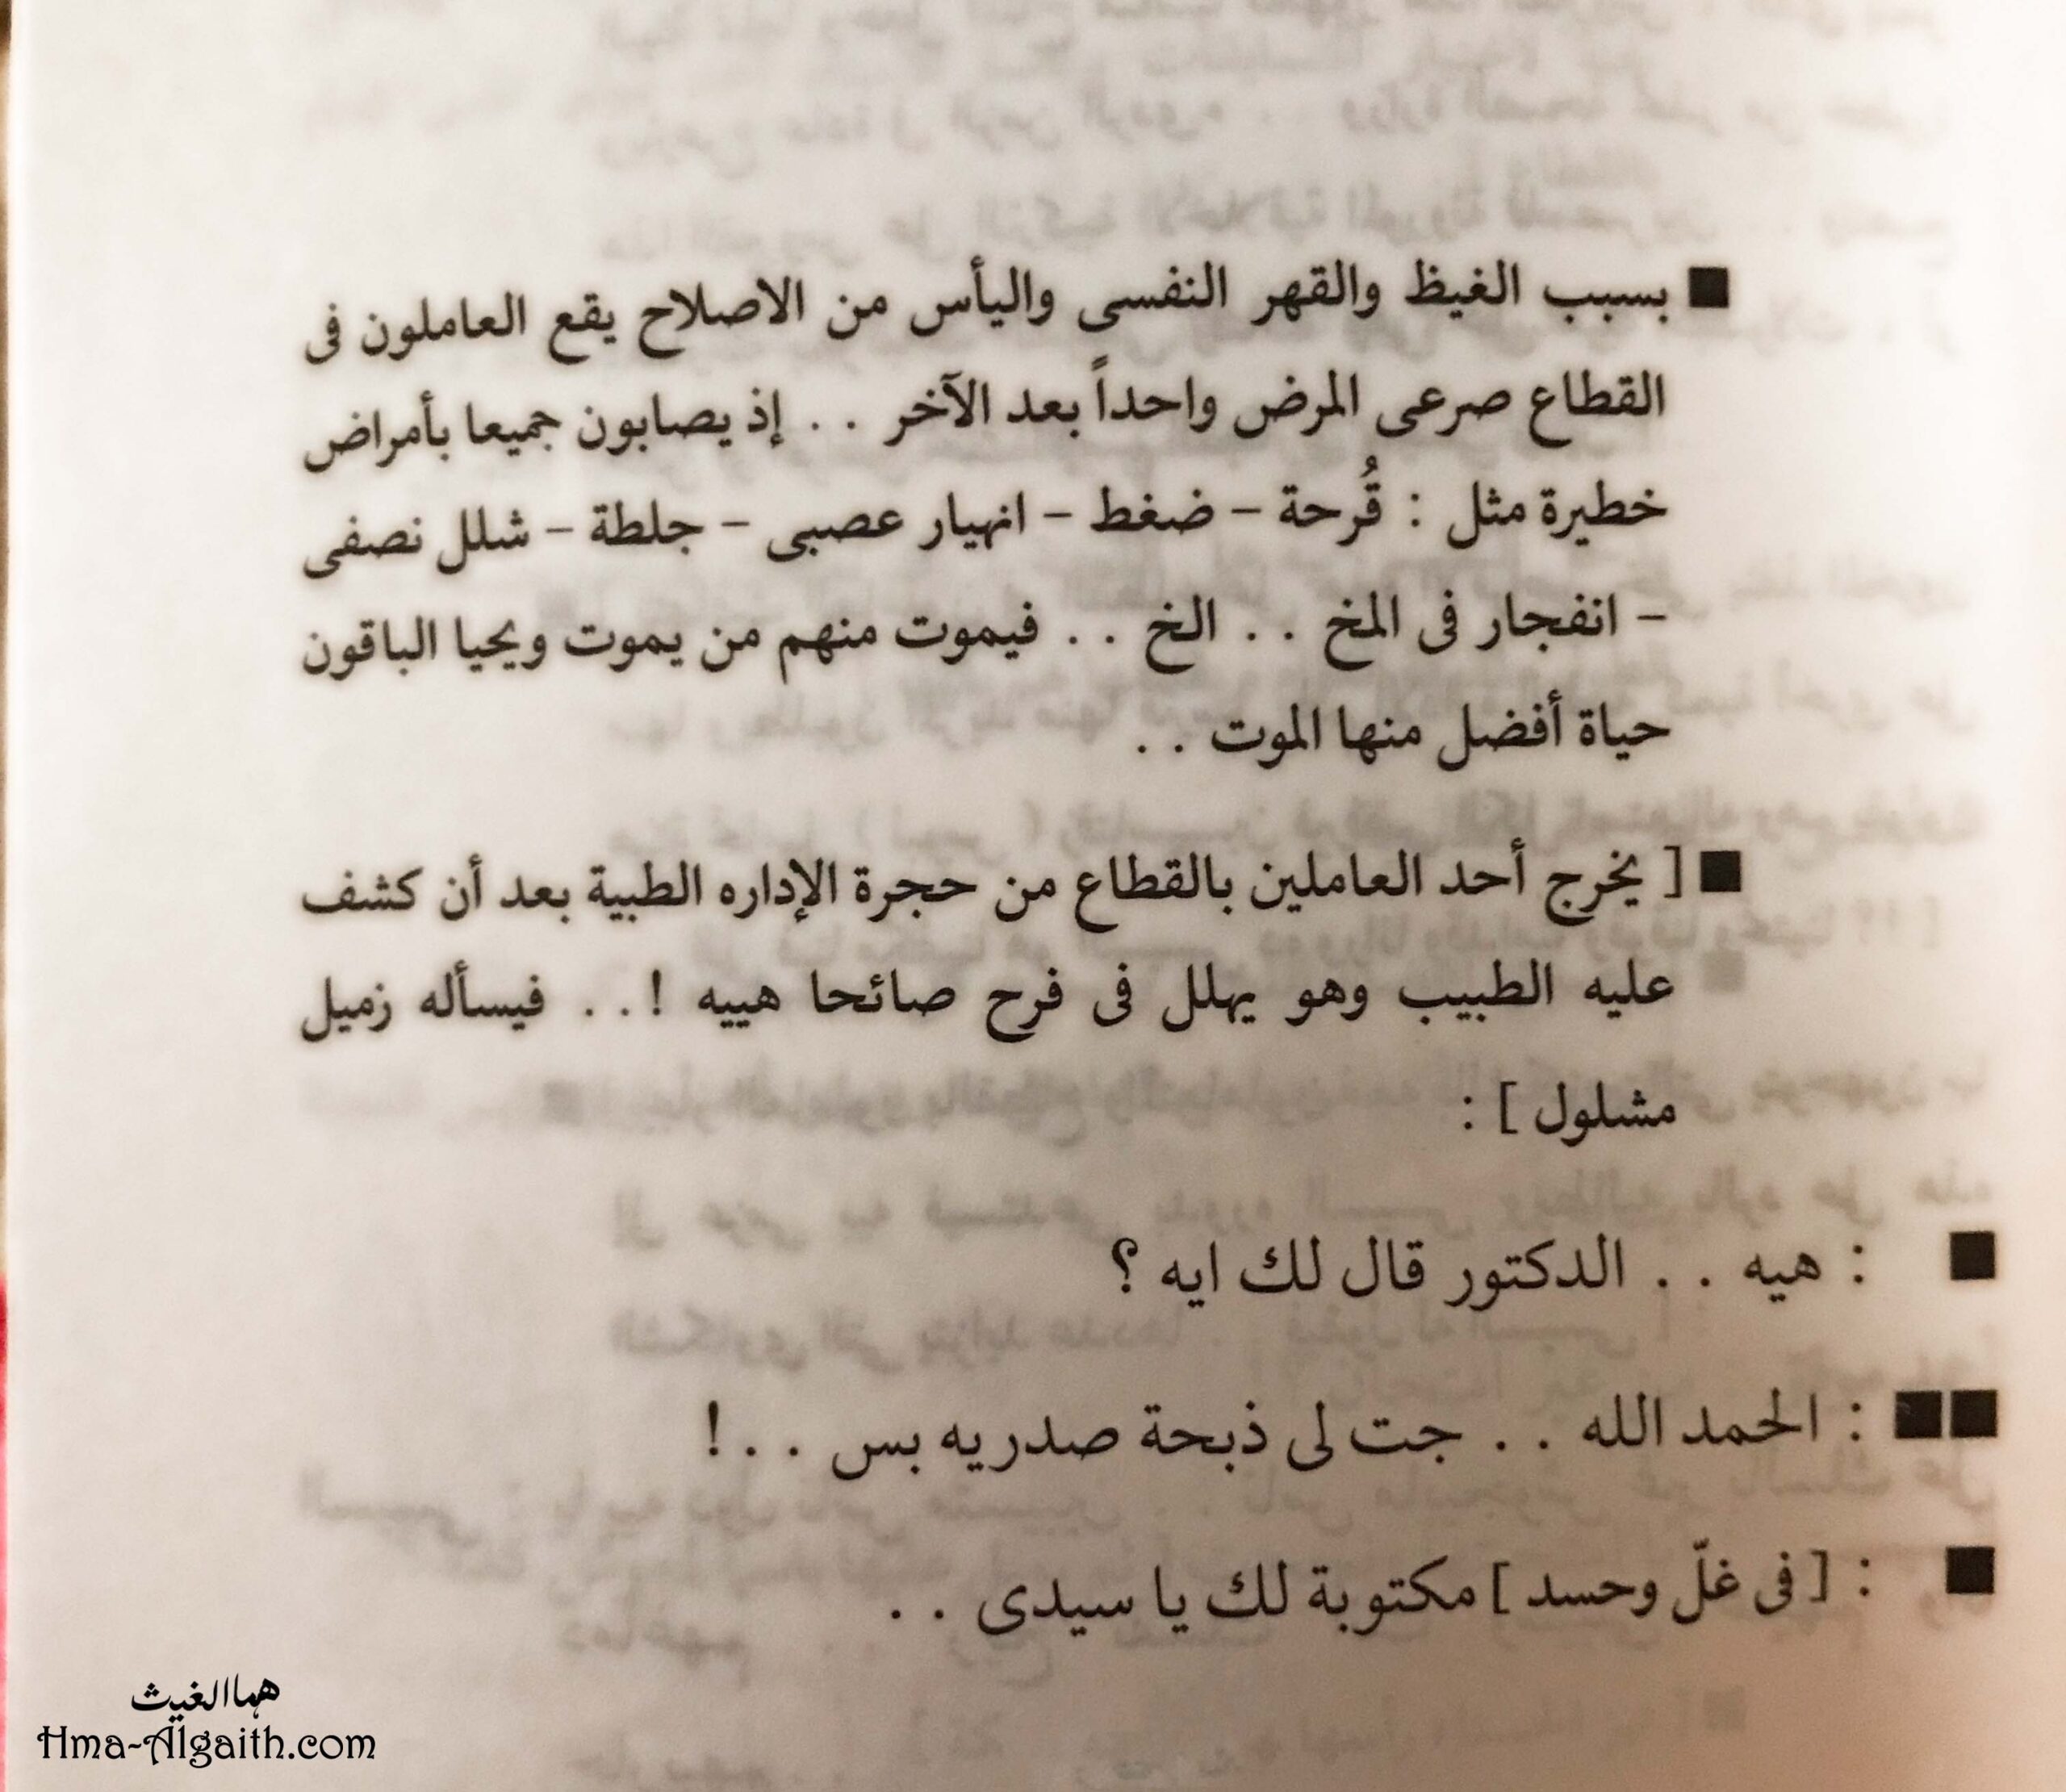 ■ بسبب الغيظ والقهر النفسى واليأس من الاصلاح يقع العاملون فى
القطاع صرعى المرض واحداً بعد الآخر . . إذ يصابون جميعا بأمراض
خطيرة مثل : قُرحة – ضغط – انهيار عصبى – جلطة – شلل نصفى
– انفجار فى المخ . . الخ . . فيموت منهم من يموت ويحيا الباقون
حياة أفضل منها الموت . .
■ [ يخرج أحد العاملين بالقطاع من حجرة الإداره الطبية بعد أن كشف
عليه الطبيب وهو يهلل فى فرح صائحا هييه ! . . فيسأله زميل
مشلول ] :
■ : هيه . . الدكتور قال لك ايه ؟
■■ : الحمد الله . . جت لى ذبحة صدريه بس . . !
■ : [ فى غلّ وحسد ] مكتوبة لك يا سيدى . .
هماالغيث
Hma-Algaith.com